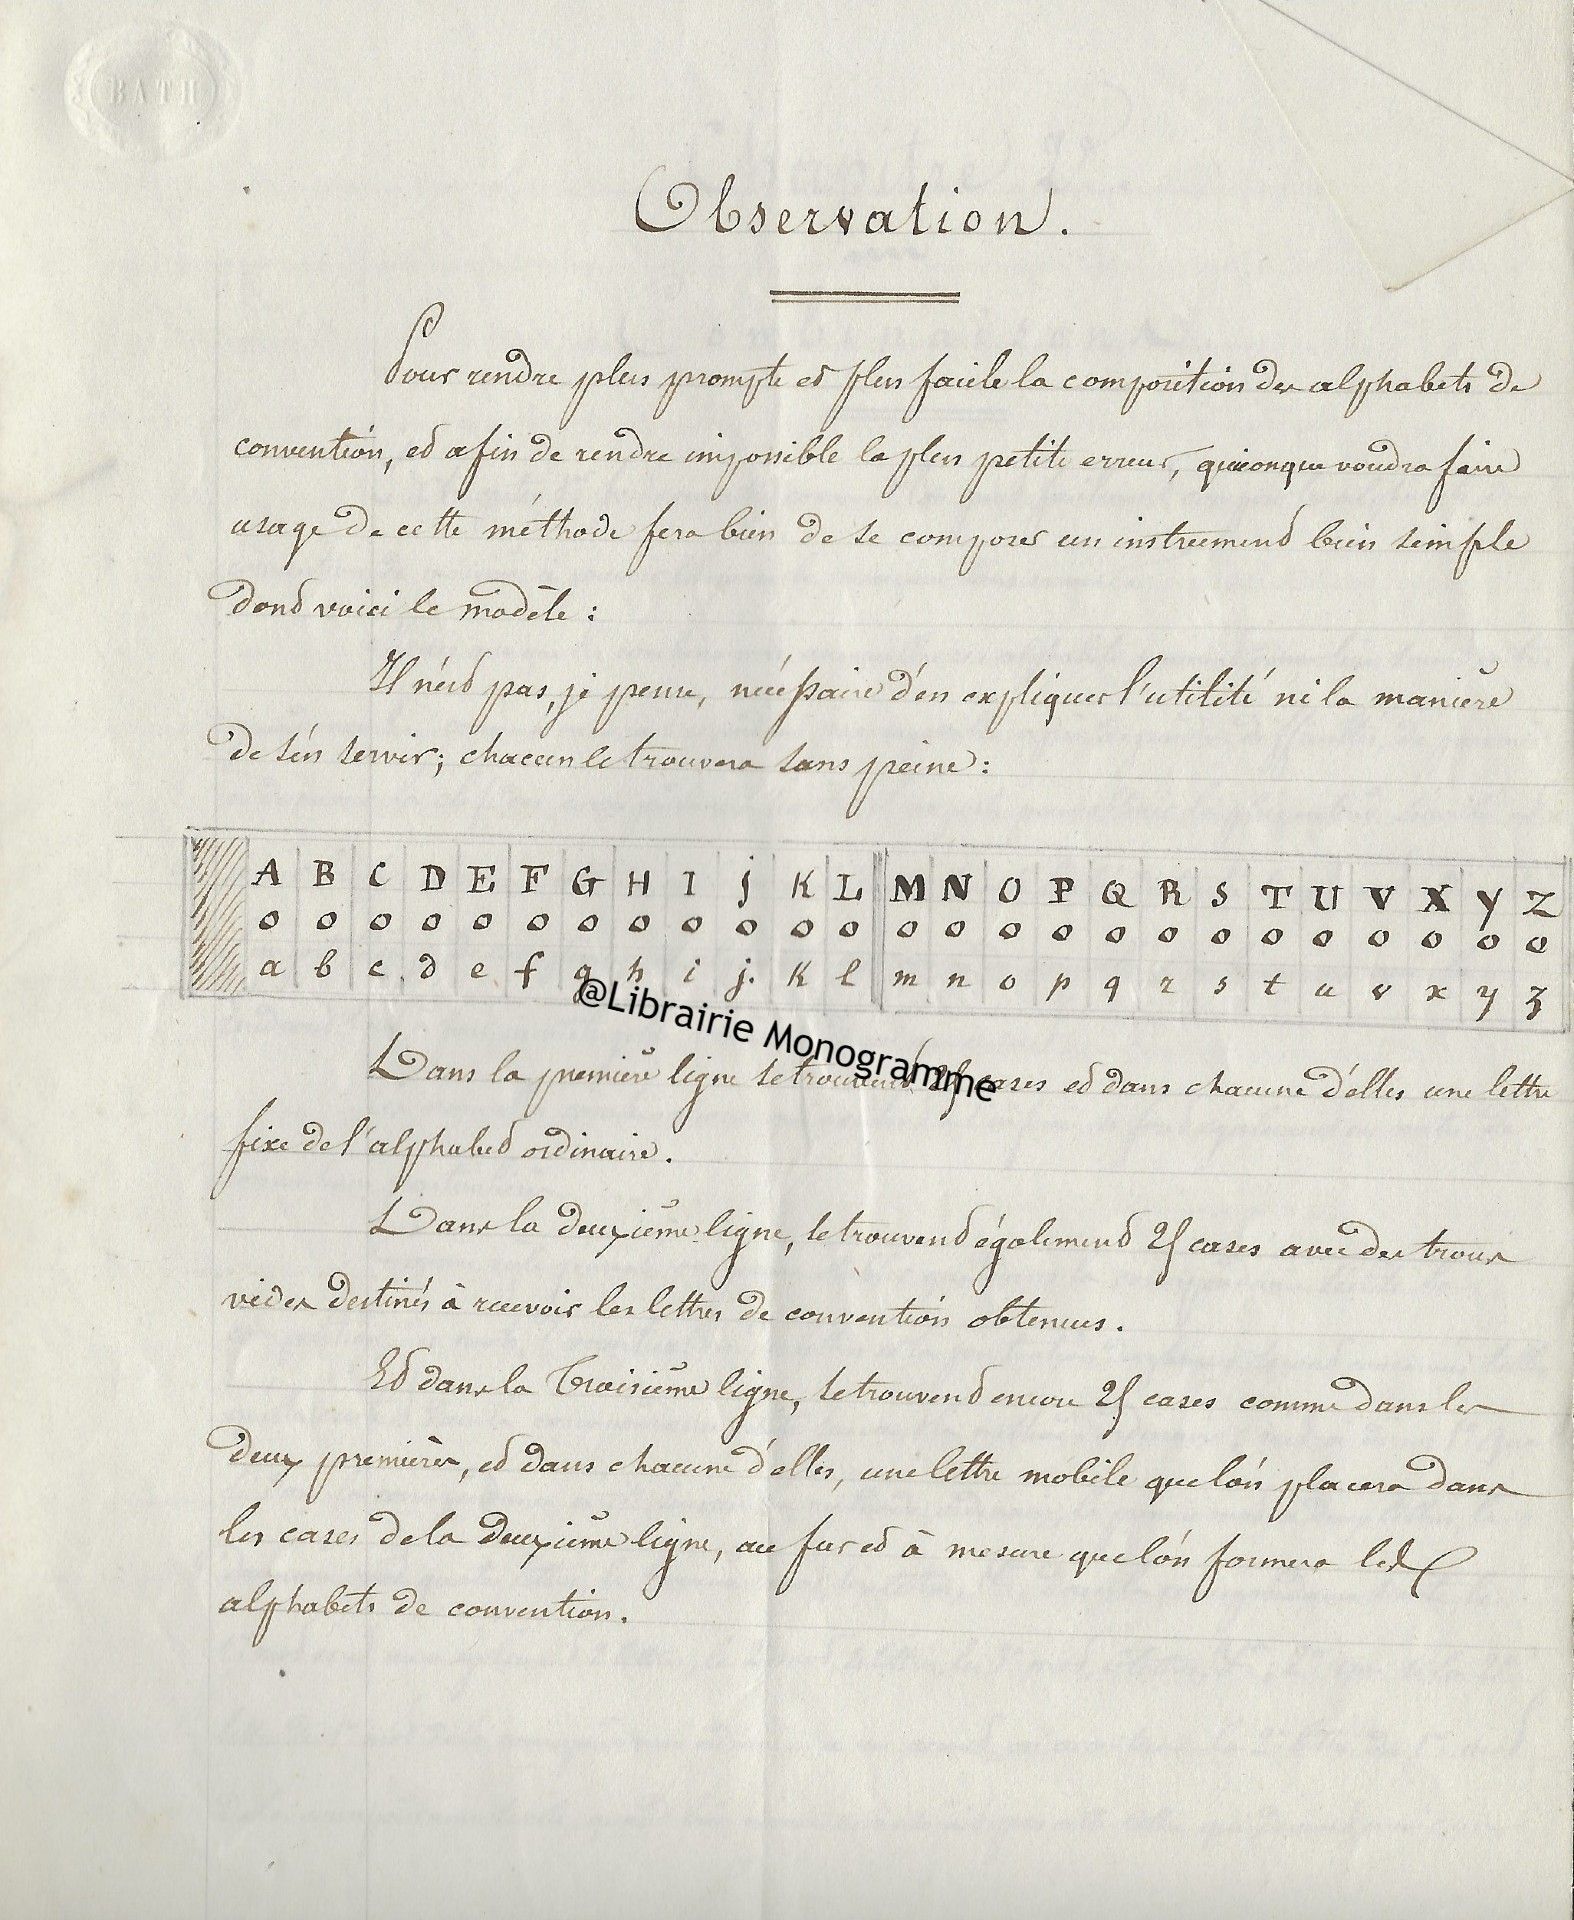 BATH
Observation.
Pour rendre plus prompte et plus facile la composition des alphabets de
convention, et afin de rendre impossible la plus petite erreur, quiconque voudra faire
usage de cette méthode fera bien de se composer un instrument bien simple
dont voici le modèle :
Il n'est pas, je pense, nécessaire d'en expliquer l'utilité ni la manière
de s'en servir ; chacun le trouvera sans peine :
A B C D E F G H I J K L M N O P Q R S T U V X Y Z
o o o o o o o o o o o o o o o o o o o o o o o o o
a b c d e f g h i j. k l m n o p q r s t u v x y z
@Librairie Monogramme
Dans la première ligne se trouvent 25 cases et dans chacune d'elles une lettre
fixe de l'alphabet ordinaire.
Dans la deuxième ligne, se trouvent également 25 cases avec des trous
vides destinés à recevoir les lettres de convention obtenues.
Et dans la troisième ligne, se trouvent encore 25 cases comme dans les
deux premières, et dans chacune d'elles, une lettre mobile que l'on placera dans
les cases de la deuxième ligne, au fur et à mesure que l'on formera les
alphabets de convention.